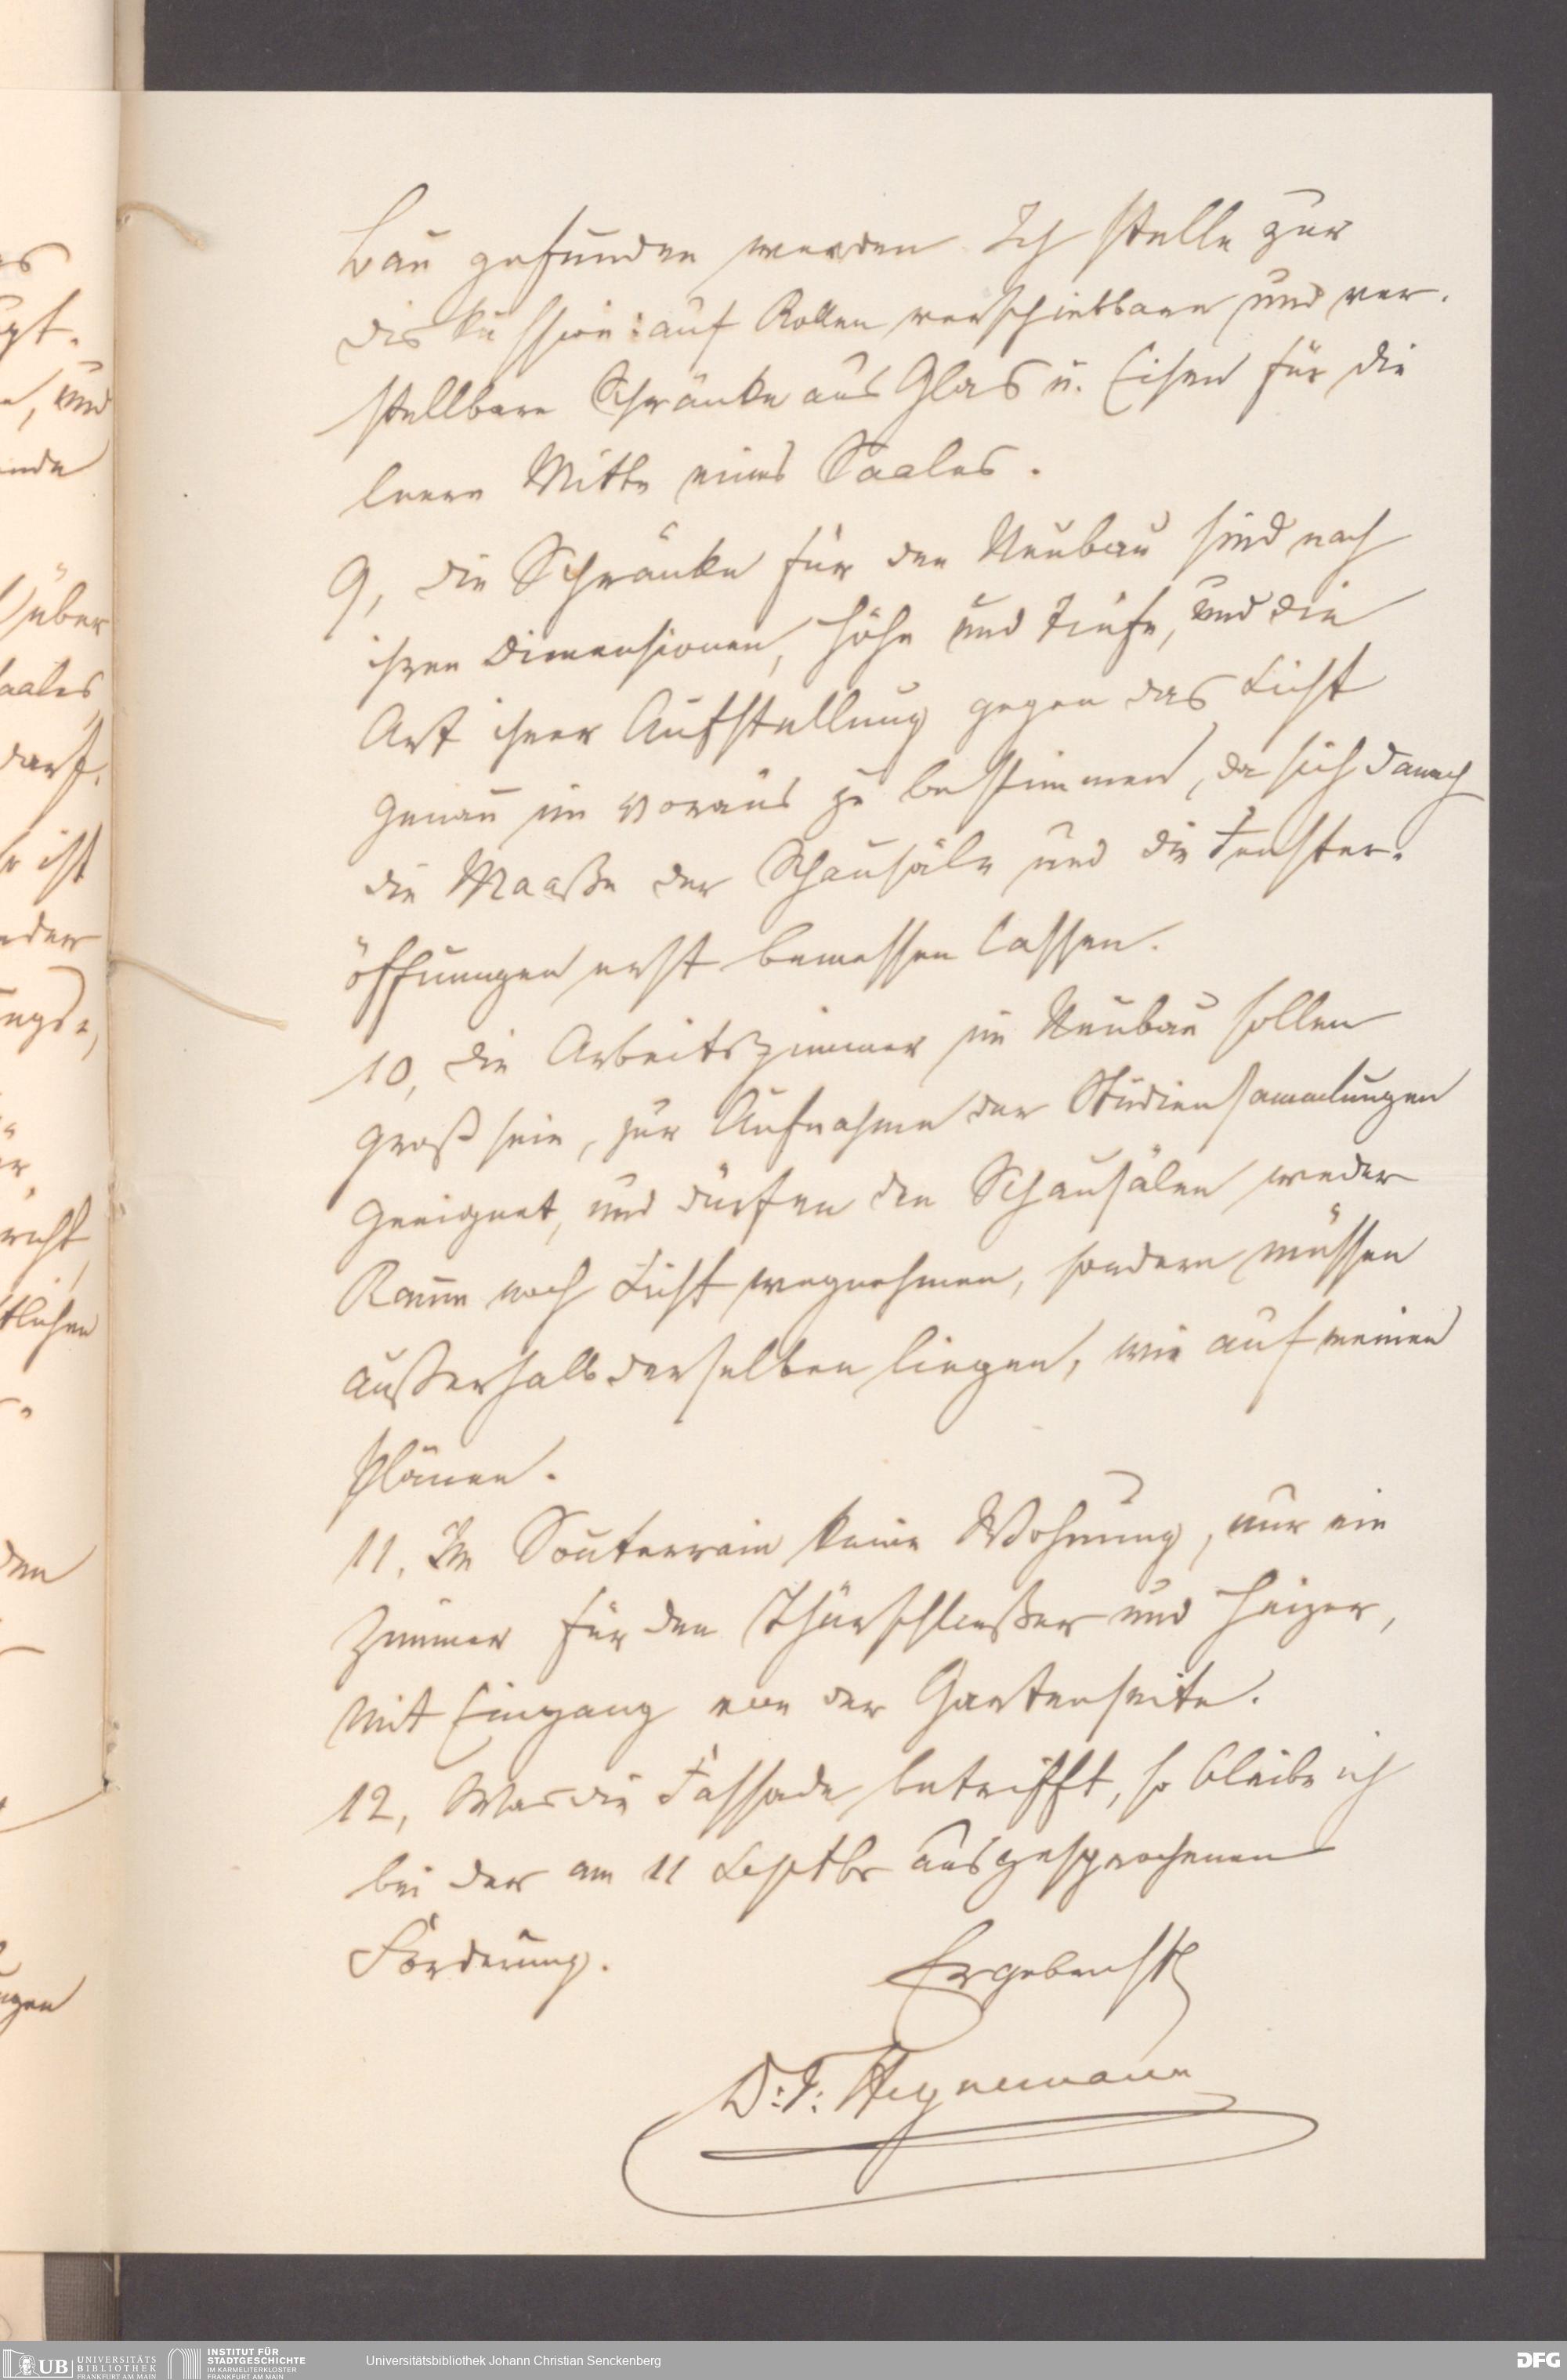 bau gefunden werden Ich stelle zur
Diskussion: auf Rollen verschiebbare und ver-
stellbare Schränke aus Glas u. Eisen für die
leere Mitte eines Saales.
9, Die Schränke für den Neubau sind nach
ihren Dimensionen, Höhe und Tiefe, und die
Art ihrer Aufstellung gegen das Licht
genau im Voraus zu bestimmen, da sich danach
die Maaße der Schausäle und die Fenster-
öffnungen erst bemessen lassen.
10, Die Arbeitszimmer im Neubau sollen
groß sein, zur Aufnahme der Studiensammlungen
geeignet, und dürfen den Schausälen weder
Raum noch Licht wegnehmen, sondern müssen
außerhalb derselben liegen, wie auf meinen
Plänen.
11. Im Souterrain keine Wohnung, nur ein
Zimmer für den Thürschließer und Heizer,
mit Eingang von der Gartenseite.
12, Was die Fassade betrifft, so bleibe ich
bei der am 11 Septbr ausgesprochenen
Forderung.
Ergebenst
D. F. Heynemann
UB UNIVERSITÄTS
BIBLIOTHEK
FRANKFURT AM MAIN
INSTITUT FÜR
STADTGESCHICHTE
IM KARMELITERKLOSTER
FRANKFURT AM MAIN
Universitätsbibliothek Johann Christian Senckenberg
DFG